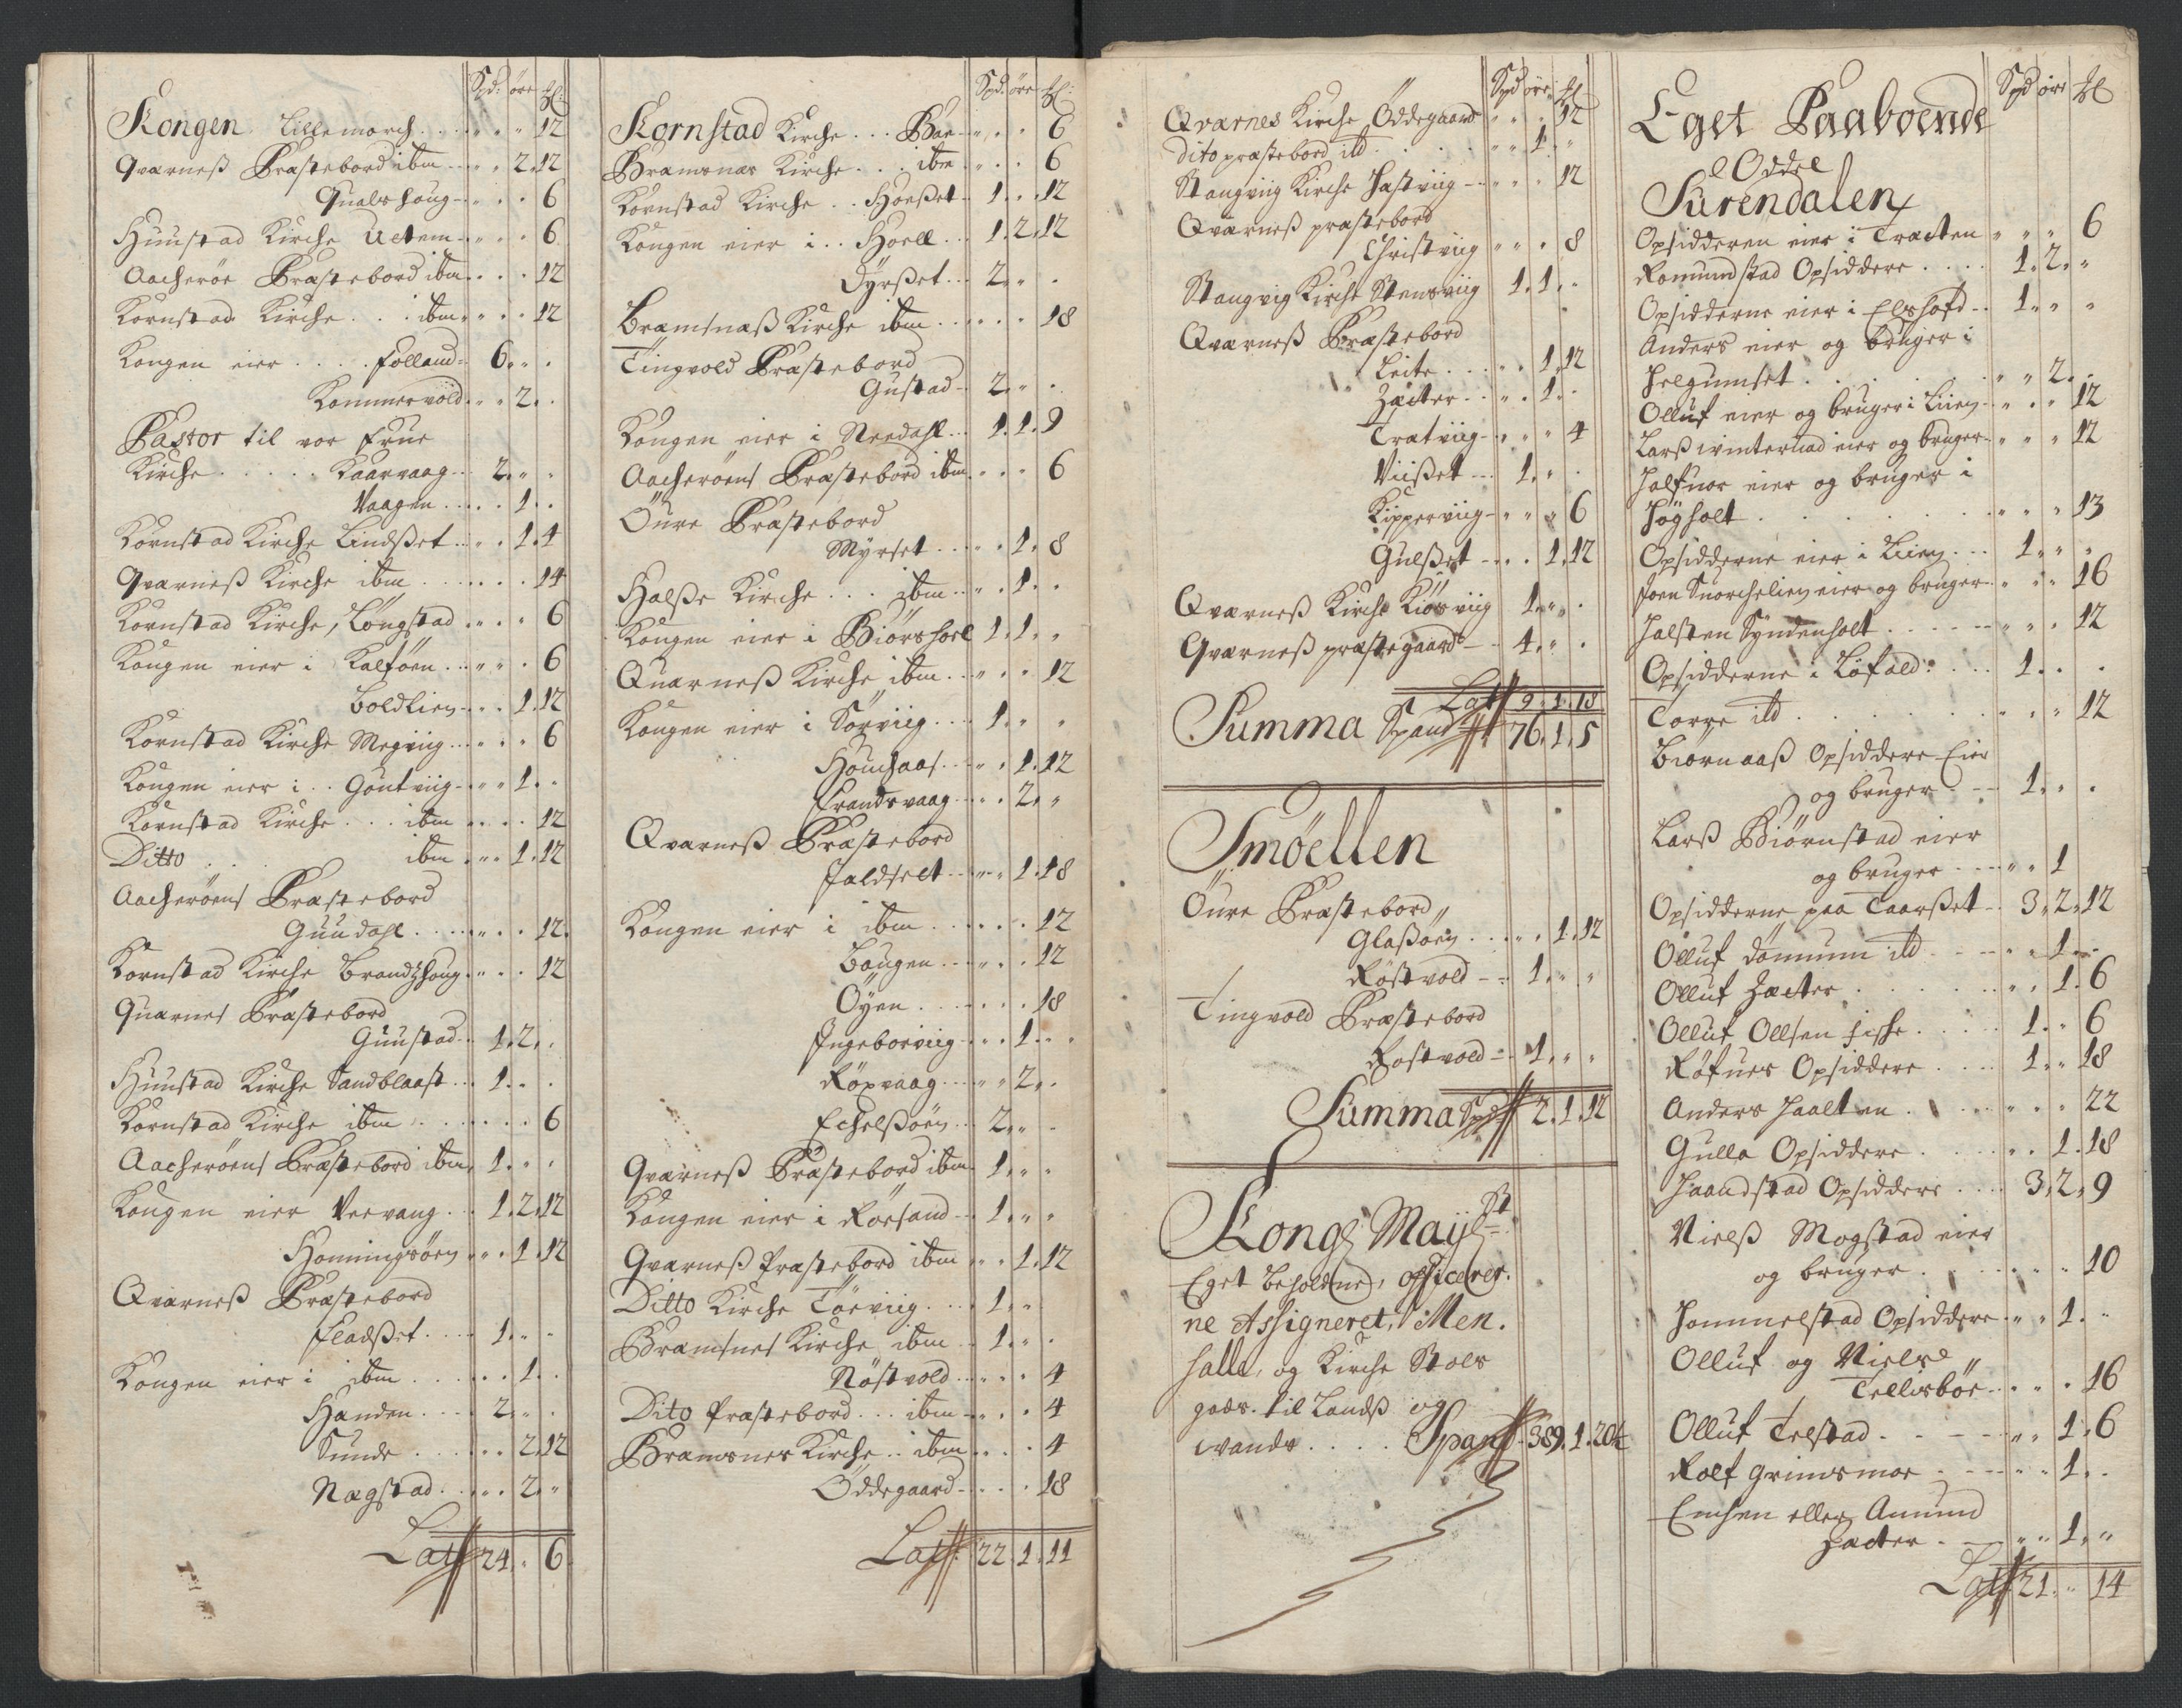 Spd: öre ℔:
Kongen Lillemarch . . . " " 12
Qvarneß Præstebord ibm . . " 2. 12
Qualshoug - " . . 6
Huustad Kirche Uctem - " . . 6
Aacherøe Præstebord ibm . . . 12
Kornstad Kirche . . ibm " . . 12
Kongen eier . . . Folland - 6. " .
Kammervold . " 2. .
Pastor til vor Frue
Kirche . . . . Kaarvaag - 2. " "
Vaagen . . . . 1. .
Kornstad Kirche Lindßet . . . 1. 4
Qvarneß Kirche ibm . . . . . 14
Kornstad Kirche, Løngstad . . . 6
Kongen eier i Kalføen . . " " . 6
Boldlien - . . 1. 12
Kornstad Kirche Megviig . . . . 6
Kongen eier i . . Gøntviig - " " 1. "
Kornstad Kirche . . . ibm . . . 12
Ditto . . ibm . " " 1. 12
Aacherøens Præstebord
Guudahl . . . " . . 12.
Kornstad Kirche Brandtzhoug . " . . 12
Quarnes Præstebord
Guustad - 1. 2. .
Huustad Kirche Sandblaast . . 1. . .
Kornstad Kirche ibm . . . . . 6
Aacherøens Præstebord ibm . 1. " "
Kongen eier Veevang . . 1. 2. 12
Honningsøen " " . 1. 12
Qvarneß Præstebord
Fladßet . . . 1. " "
Kongen eier i ibm . . . . . 1. .
Handen . . . . 2. " .
Sunde . . . . . . 2. 12
Nægstad . . . . 2. "
Lat 24. " 6
Spd. öre ℔:
Kornstad Kirche . . . Bæe - " . . 6
Bramsnæs Kirche . . . ibm . " . . 6
Kornstad Kirche . . Hoeßet - 1. . . 12
Kongen eier i . . Hoell . . . 1. 2. 12
Dyrßet . . . 2. " .
Bramsnæß Kirche ibm . . . . . 18
Tingvold Præstebord
Gustad - 2. " .
Kongen eier i Needahl . . . 1. 1. 9
Aacherøens Præstebord ibm . . . 6
Öure Præstebord
Myrset . . . . 1. 8
Halße Kirche . . . ibm . . . 1. .
Kongen eier i Biørshoel 1. 1. "
Quarneß Kirche ibm . . " . . 12
Kongen eier i Sørviig . . . 1. " "
Houchaas . . " . 1. 12
Frandsvaag . . . 2. "
Qvarneß Præstebord
Jaldselt . . . " 1. 18
Kongen eier i ibm . . . . . 12
Bougen . . . . . 12
Öyen . . . . . . 18
Ingeborviig . . . 1. " "
Røxvaag . . . " " 2. .
Echelßøen . . 2. " "
Qvarneß Præstebord ibm . 1. " "
Kongen eier i Røesand - 1. " "
Qvarneß Præstebord ibm . . 1. 12
Ditto Kirche Tøeviig . . . 1. "
Bramsnes Kirche ibm . . 1. " .
Nøstvold . . . . . 4
Dito Præstebord . . . ibm - . . . 4
Bramsnes Kirche . . ibm . . . . 4
Öddegaard - . . . 18
Lat. 22. 1. 11
Spd öre ℔
Qvarnes Kirche Öddegaard " " . 12
dito præstebord itd . . . . . " " 1. "
Stangviig Kirche Hastviig - " " . 12
Qvarneß præstebord
Christviig " " . 8
Stangvig Kirche Stensviig 1. 1. "
Qvarneß Præstebord
Leite . . . . . 1. 12
Zæter . . " . 1. .
Trætviig - " . " 4
Viißet - - 1. " .
Kipperviig - " " " 6
Gulßet - . . 1. 12
Qvarneß Kirche Kiørviig 1. " " .
Qvarneß præstegaard - 4. " .
Lat 9. 1. 18
Summa Spand 76. 1. 5
Smöellen
Öure Præstebord
Glaßøen . . . . 1. 12
Røstvold - - 1. " "
Tingvold Præstebord
Rostvold - - 1. " "
Summa Spd 2. 1. 12
Kongl Mayl st
Eget Beholdne, officerer.
ne Assigneret, Men.
salle, og Kirche Stoels
gods. til Landß og
wands . . . . Spand - 389. 1. 20½
Spd öre ℔
Eget Paaboende
Oddel
Surendalen
Opsidderen eier i Træcten " " " 6
Romundstad Opsiddere . . . . 1. 2. "
Opsidderne eier i Elshoft - . 1. " "
Anders eier og bruger i
Helgumset . . . . . . " " 2. .
Olluf eier og bruger i Liien - " . " 12
Larß winterliad eier og bruger - " " " 12
Halfuor eier og bruger i
Høgholt . . . . . . . " " " 13
Opsidderne eier i Liien . . . 1. " "
Joen Snorchelien eier og bruger - " " " 16
Halsten Syndenholt . . . - - " " . 12
Opsidderne i Løfald : . . . 1. . .
Torre itd . . . . . . . . " " " 12
Biørnaaß Opsiddere Eier
og bruger . - - 1. " .
Larß Biørnstad eier
og bruger . - - " " 1
Opsidderne paa Taarßet - 3. 2. 12
Olluf Dømmum itd . - - " " 1. "
Olluf Zæter . . . . . . " . 1. 6
Olluf Ollsen Fiske . . . . 1. " 6
Røfnes Opsiddere . . . . 1. " 18
Anders Haalten . . . . " . . 22
Gulla Opsiddere . . . . " . 1. 18
Haandstad Opsiddere . . . 3. 2. 9
Nielß Mogstad eier
og bruger . . . . . . . 10
Hommelstad Opsiddere . " . 1. "
Olluf og Nielse
Tellisbøe . . . . . 16
Olluf Telstad . - - - " " 1. 6
Rolf Grimsmoe . - - - " " 1. .
Emhen eller Amund
Zæter . - - " " 1. "
Lat. 21. " 14